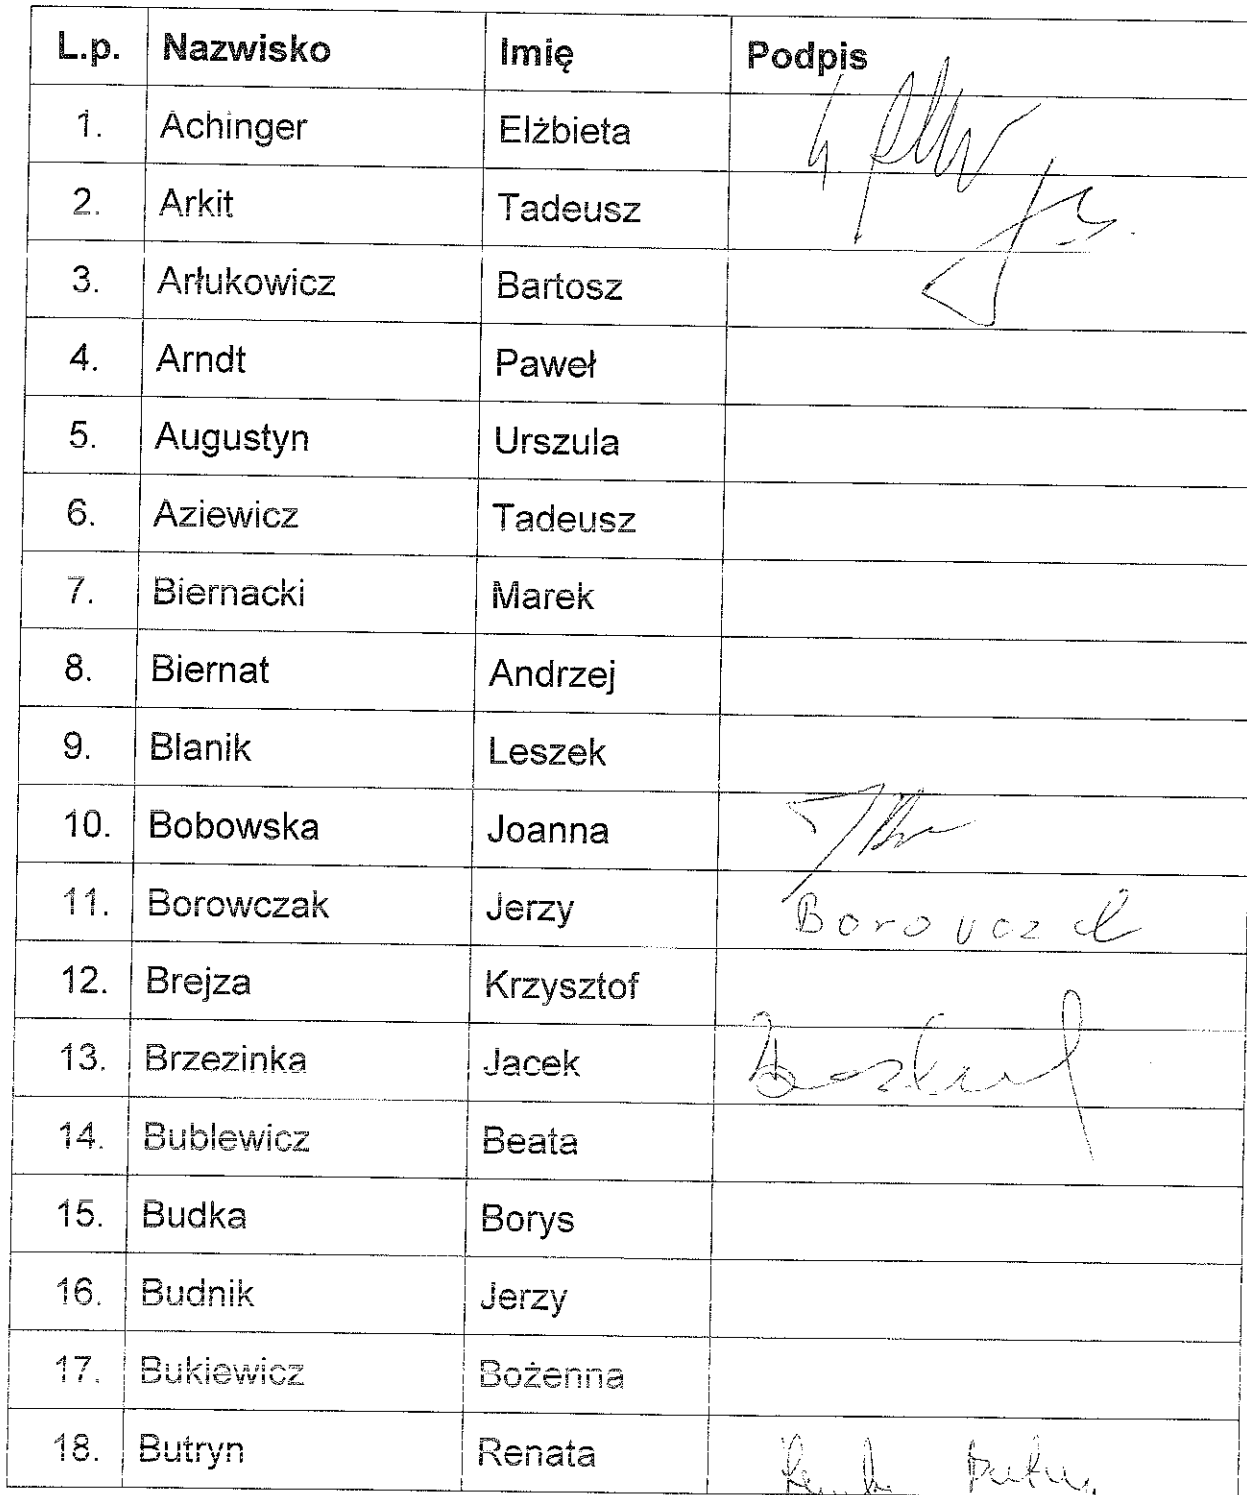 L.p. Nazwisko Imię Podpis
1. Achinger Elżbieta
2. Arkit Tadeusz
3. Arłukowicz Bartosz
4. Arndt Paweł
5. Augustyn Urszula
6. Aziewicz Tadeusz
7. Biernacki Marek
8. Biernat Andrzej
9. Blanik Leszek
10. Bobowska Joanna
11. Borowczak Jerzy Borowczak
12. Brejza Krzysztof
13. Brzezinka Jacek
14. Bublewicz Beata
15. Budka Borys
16. Budnik Jerzy
17. Bukiewicz Bożenna
18. Butryn Renata